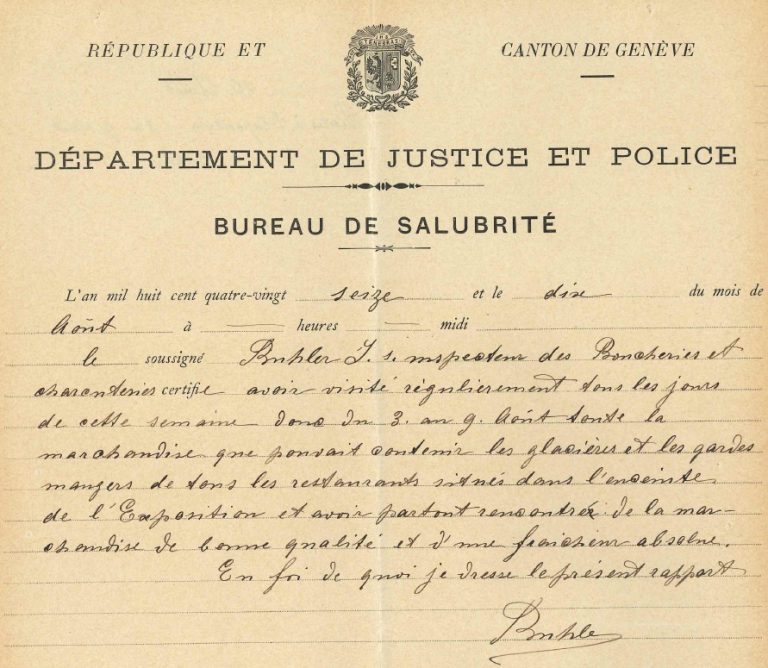 RÉPUBLIQUE ET CANTON DE GENÈVE
DÉPARTEMENT DE JUSTICE ET POLICE
BUREAU DE SALUBRITÉ
L'an mil huit cent quatre-vingt seize et le dix du mois de
Août à heures midi
le soussigné Buhler J. s. inspecteur des Boucheries et
charcuteries certifie avoir visité régulierement tous les jours
de cette semaine donc du 3. au 9. Août toute la
marchandise que pouvait contenir les glacières et les gardes
mangers de tous les restaurants situés dans l'enceinte
de l'Exposition et avoir partout rencontré de la mar-
chandise de bonne qualité et d'une fraîcheur absolue.
En foi de quoi je dresse le présent rapport
Buhler